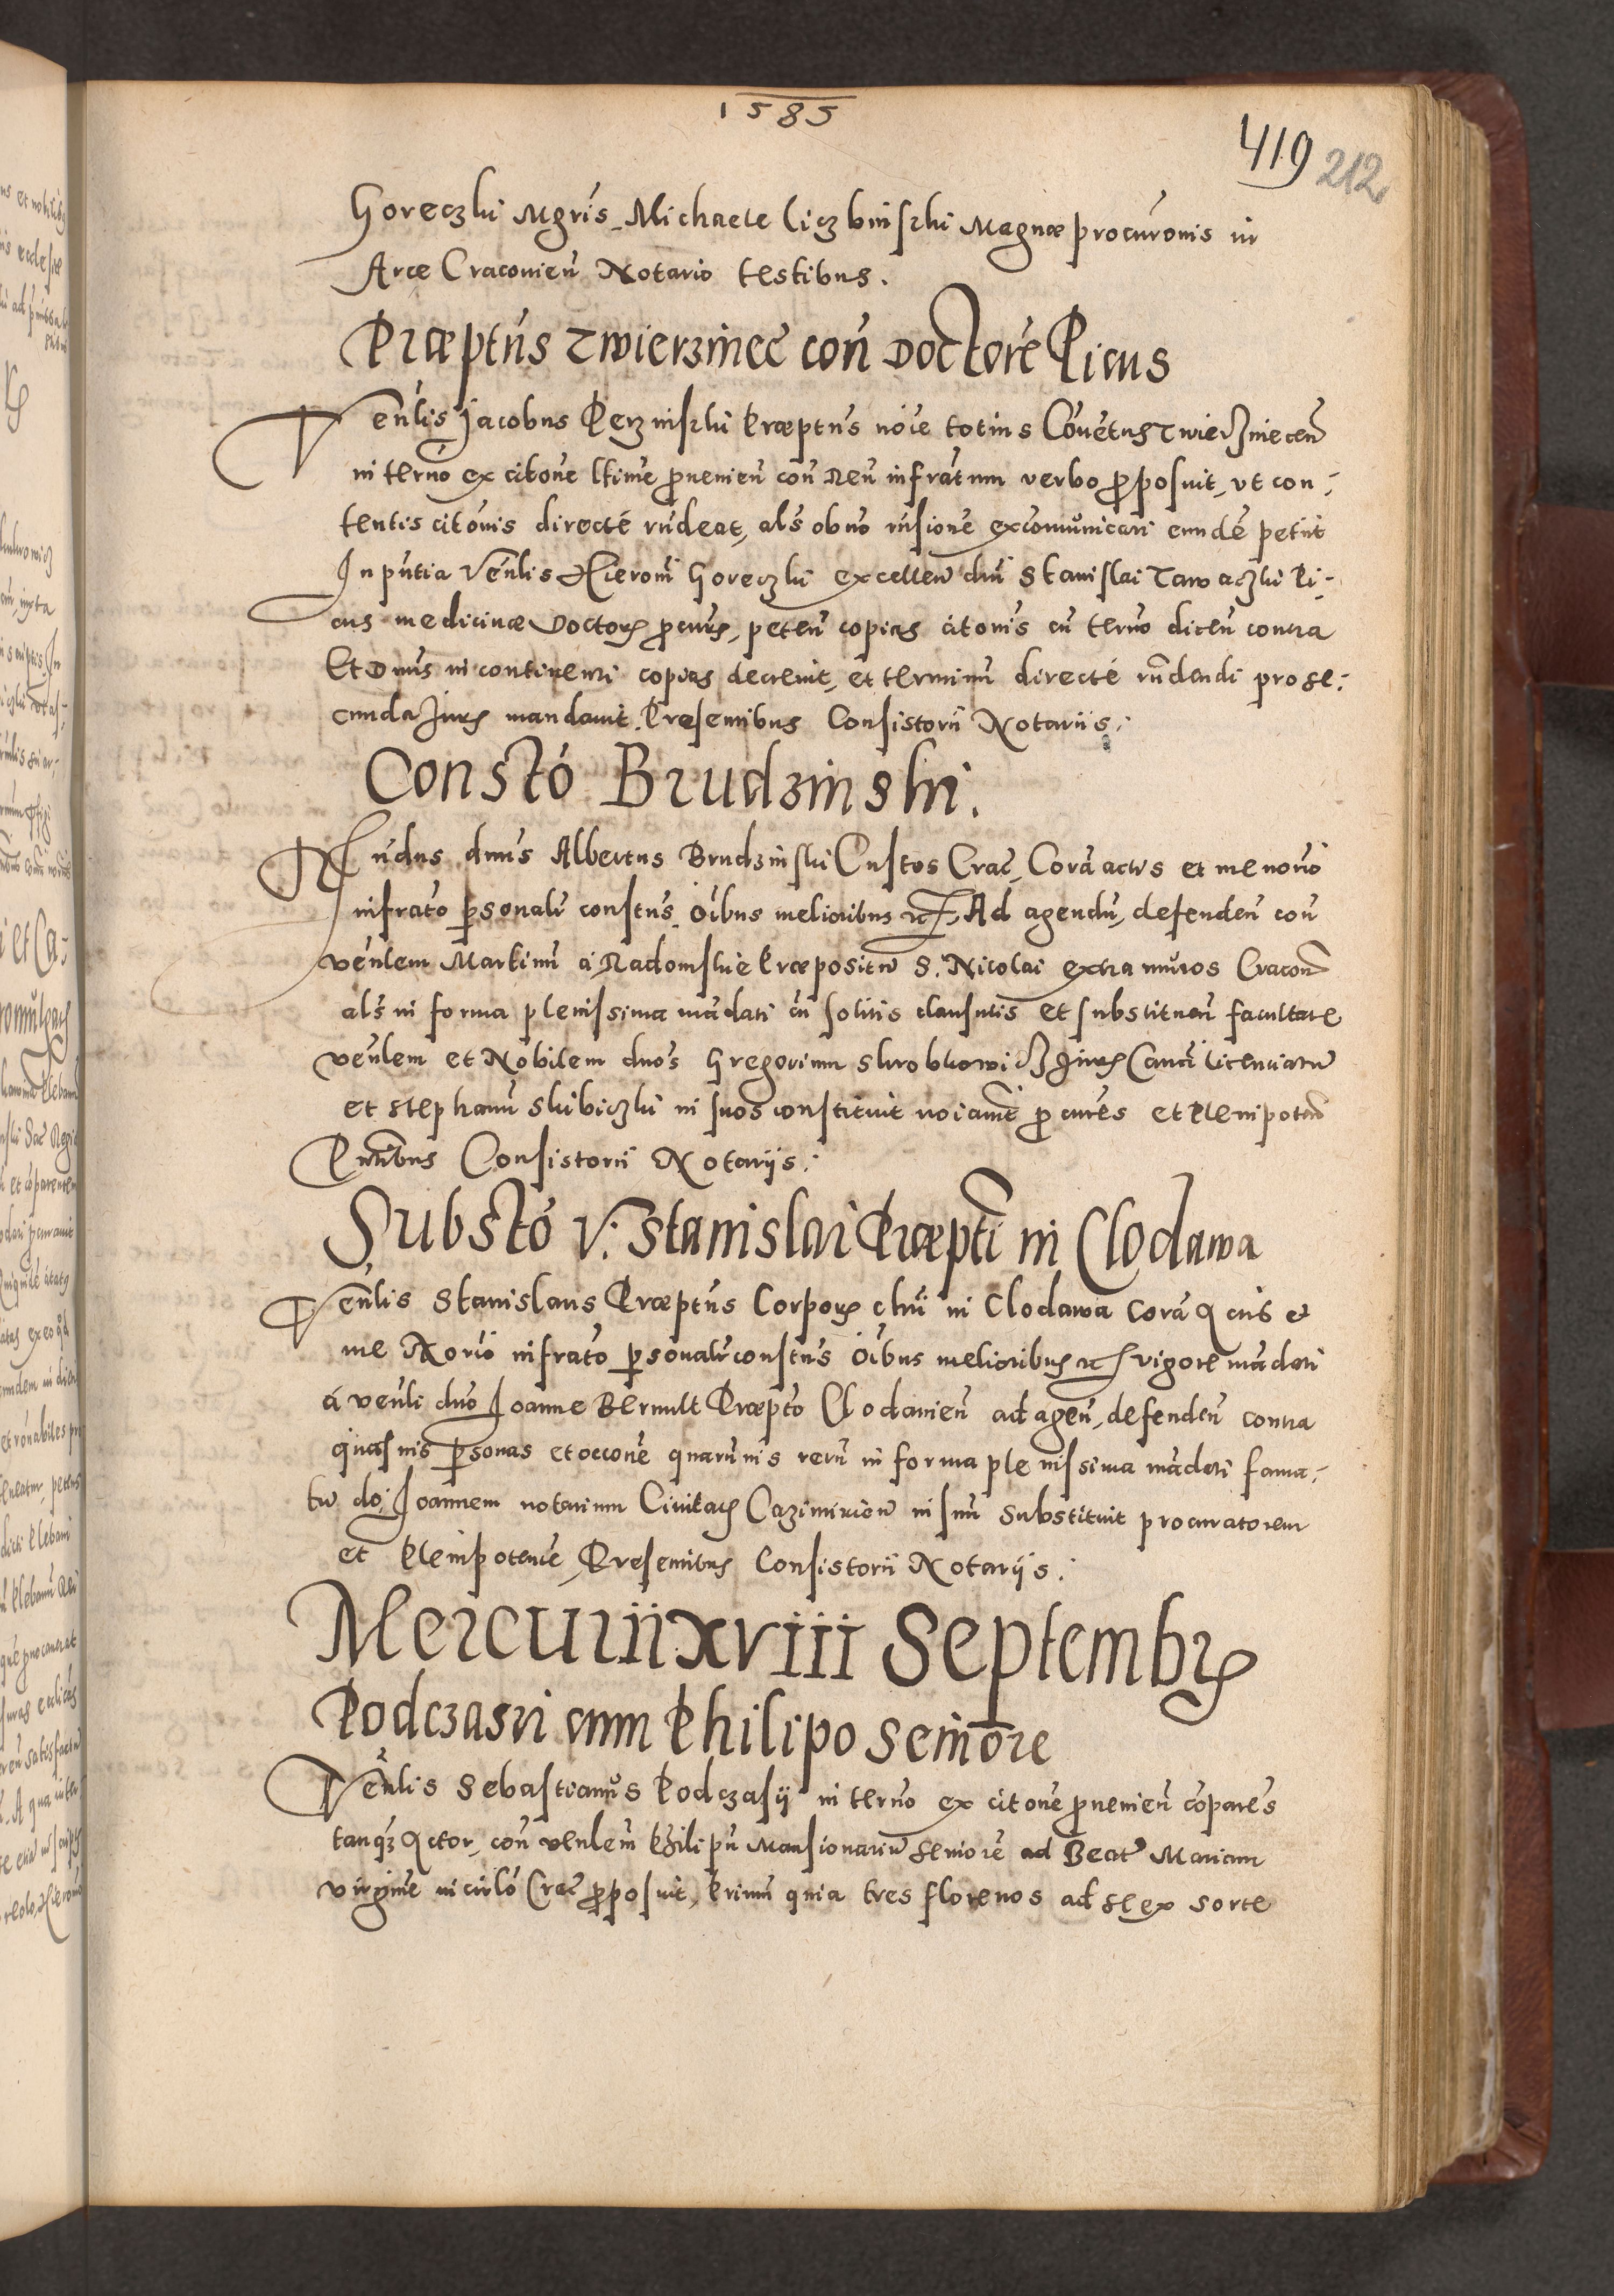 1585
419 212
Goreczki Mgris Michaele Liczbinski Magnæ procurõnis in
Arce Cracovien̄ Notario testibus.
Præptus Zwierzinec coñ Doctorē Picus
Venlis Jacobus Perzinski Præptus noīe totius Cōvetus Zwierziniecen̄
in termō ex citōne ltime ꝓvenien̄ con̄ Reu infratum verbo ꝓposuit, ut con-
tentis citōnis directé rñdeat, als ob nō rñsione excōmunicari eundē petiit
In pñtia Venlis Hieronī Goreczki excellen̄ dnī Stanislai Tawaczki Pi-
cus medicinæ Doctoris ꝓcuris, peten̄ copias citōnis cū termō dicen̄ contra
Et Dnūs in continenti copias decrevit, et terminū directé rñdendi pro se-
cunda Juris mandavit. Presentibus Consistorii Notariis.
Constó Brudzinski.
Rndus dnūs Albertus Brudzinski Custos Crac̄, Corā actis et me novō
infratō ꝑsonalr̄ constus Oībus melioribus etc Ad agendū, defenden̄ con̄
venlem Martinū à Radomskie Præpositū S. Nicolai extra muros Cracov̄
als in forma plenissima mādati cū solitis clausulis et substituen̄ facultate
venlem et Nobilem dnōs Gregorium Skrobkowicz Juris Canci licenciatū
et Stephanū Skibiczki in suos constituit noīavit ꝓcures et Plenipoten̄
Pntibus Consistorii Notariis.
Substó V. Stanislai Præpti in Clodawa
Venlis Stanislaus Præptus Corporis chrī in Clodawa Corā Actis et
me Notriō infratō ꝑsonalr̄ constus Oībus melioribus etc vigore mādati
á venli dnō Joanne Bernult Præptō Clodavien̄ ad agen̄, defenden̄ contra
quasvis ꝑsonas et occōne quarūvis rerū in forma plenissima mādati fama-
tū do: Joannem notarium Civitatis Cazimirien̄ in suū Substituit procuratorem
et Plenipotente, Presentibus Consistorii Notariis.
Mercurii xviii Septembris
Podczasii cum Philipo Seniore
Venlis Sebastianus Podczasii in termō ex citōne ꝓvenien̄ cōpares
tanqȝ Actor, con̄ venlem Philipū Mansionariū seniorē ad Beatā Mariam
virginē in circlō Crac̄ ꝓposuit, Primū quia tres florenos ad se ex sorte